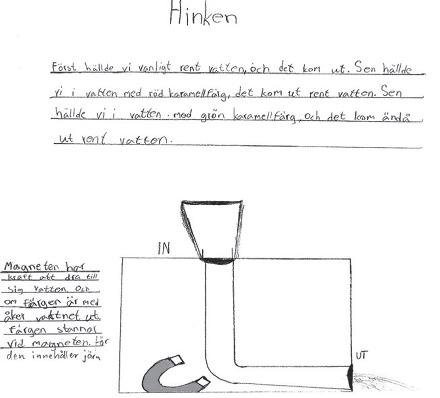 Hinken
Först hällde vi vanligt rent vatten, och det kom ut. Sen hällde
vi i vatten med röd karamellfärg, det kom ut rent vatten. Sen
hällde vi i vatten med grön karamellfärg, och det kom ändå
ut rent vatten.
IN
Magneten har
kraft att dra till
sig vatten och
om färgen är med
åker vattnet ut
färgen stannar
vid magneten. För
den innehåller järn
UT